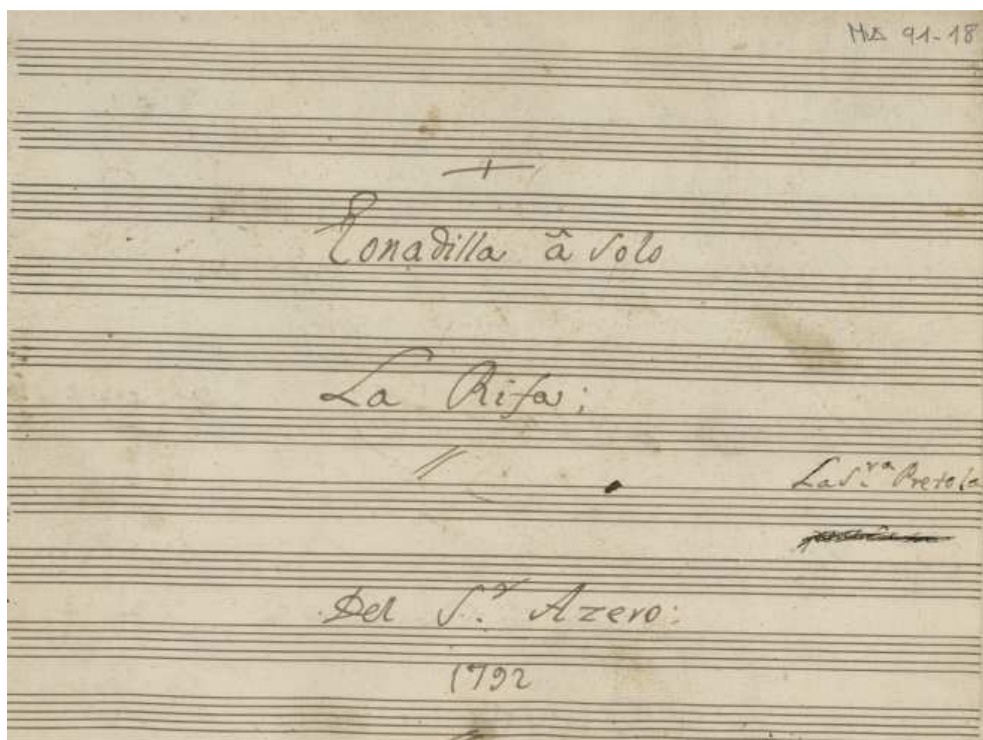 Mus 91-18
Tonadilla â solo
La Rifa;
La S.ra Pretola
Del S.r Azero:
1792